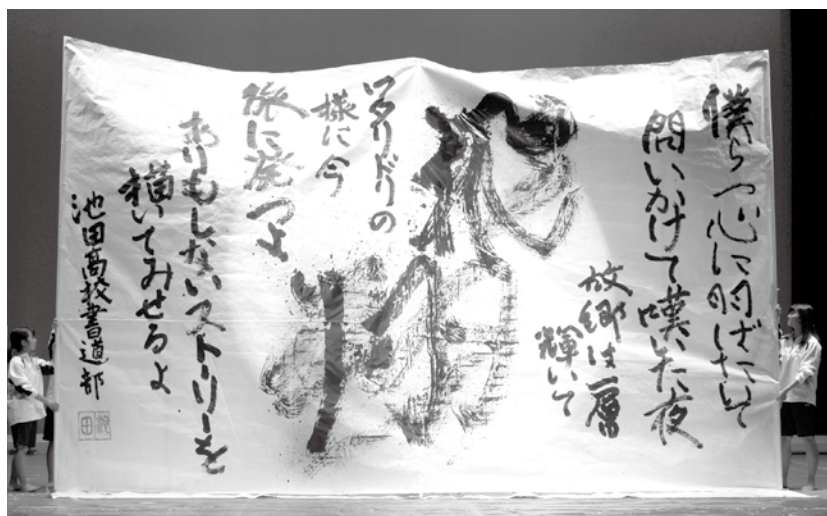 僕ら一心に羽ばたいて
問いかけて嘆いた夜
故郷は一層
輝いて
ワタリドリの
様に今
旅に発つよ
ありもしないストーリーを
描いてみせるよ
池田高校書道部
池田